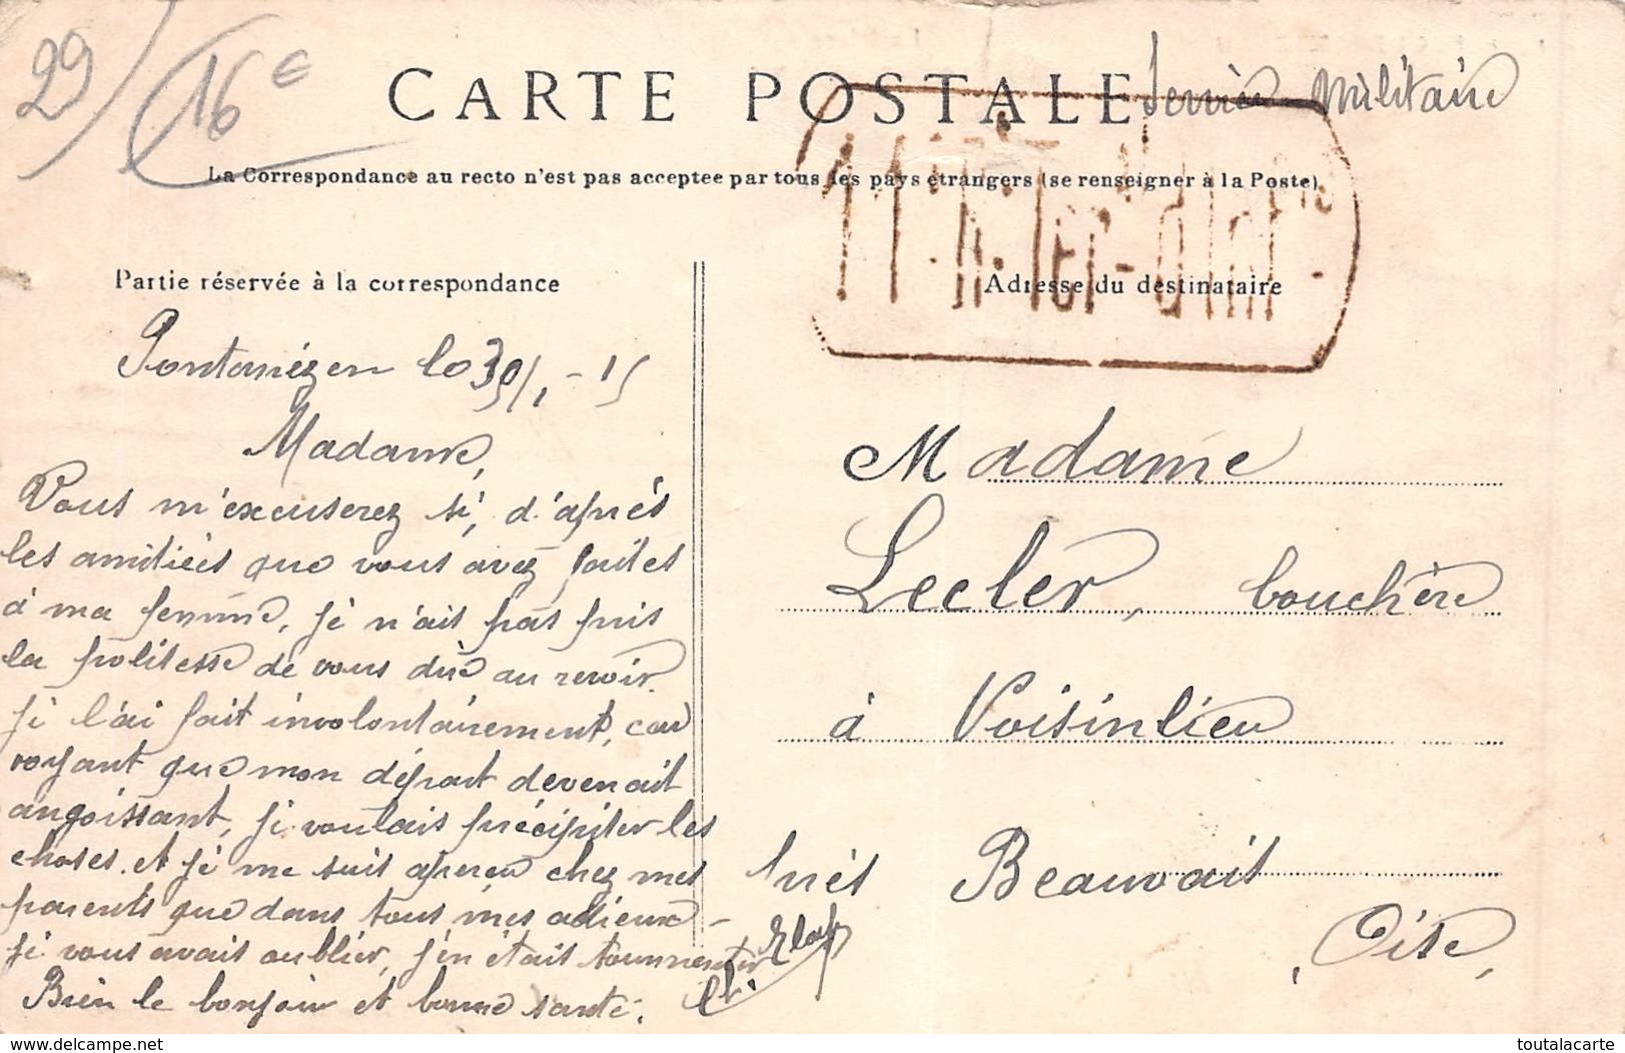 29
16 €
CARTE POSTALE
Service Militaire
La Correspondance au recto n'est pas acceptée par tous les pays étrangers (se renseigner à la Poste)
Partie réservée à la correspondance
Adresse du destinataire
Pontanézen le 30/1-15
Madame,
Vous m'excuserez si, d'après
les amitiées que vous avez faites
à ma femme, je n'ais pas puis
la politesse de vous dire au revoir.
Je l'ai fait involontairement, car
voyant que mon départ devenait
angoissant, je voulais précipiter les
choses. et je me suis aperçu chez mes
parents que dans tous mes adieux
je vous avais oublier, j'en était tourmenter
Bien le bonjour et bonne santé.
Madame
Lecler, bouchère
à Voisinlieu
près Beauvais
Oise,
https://www.delcampe.net
toutalacarte